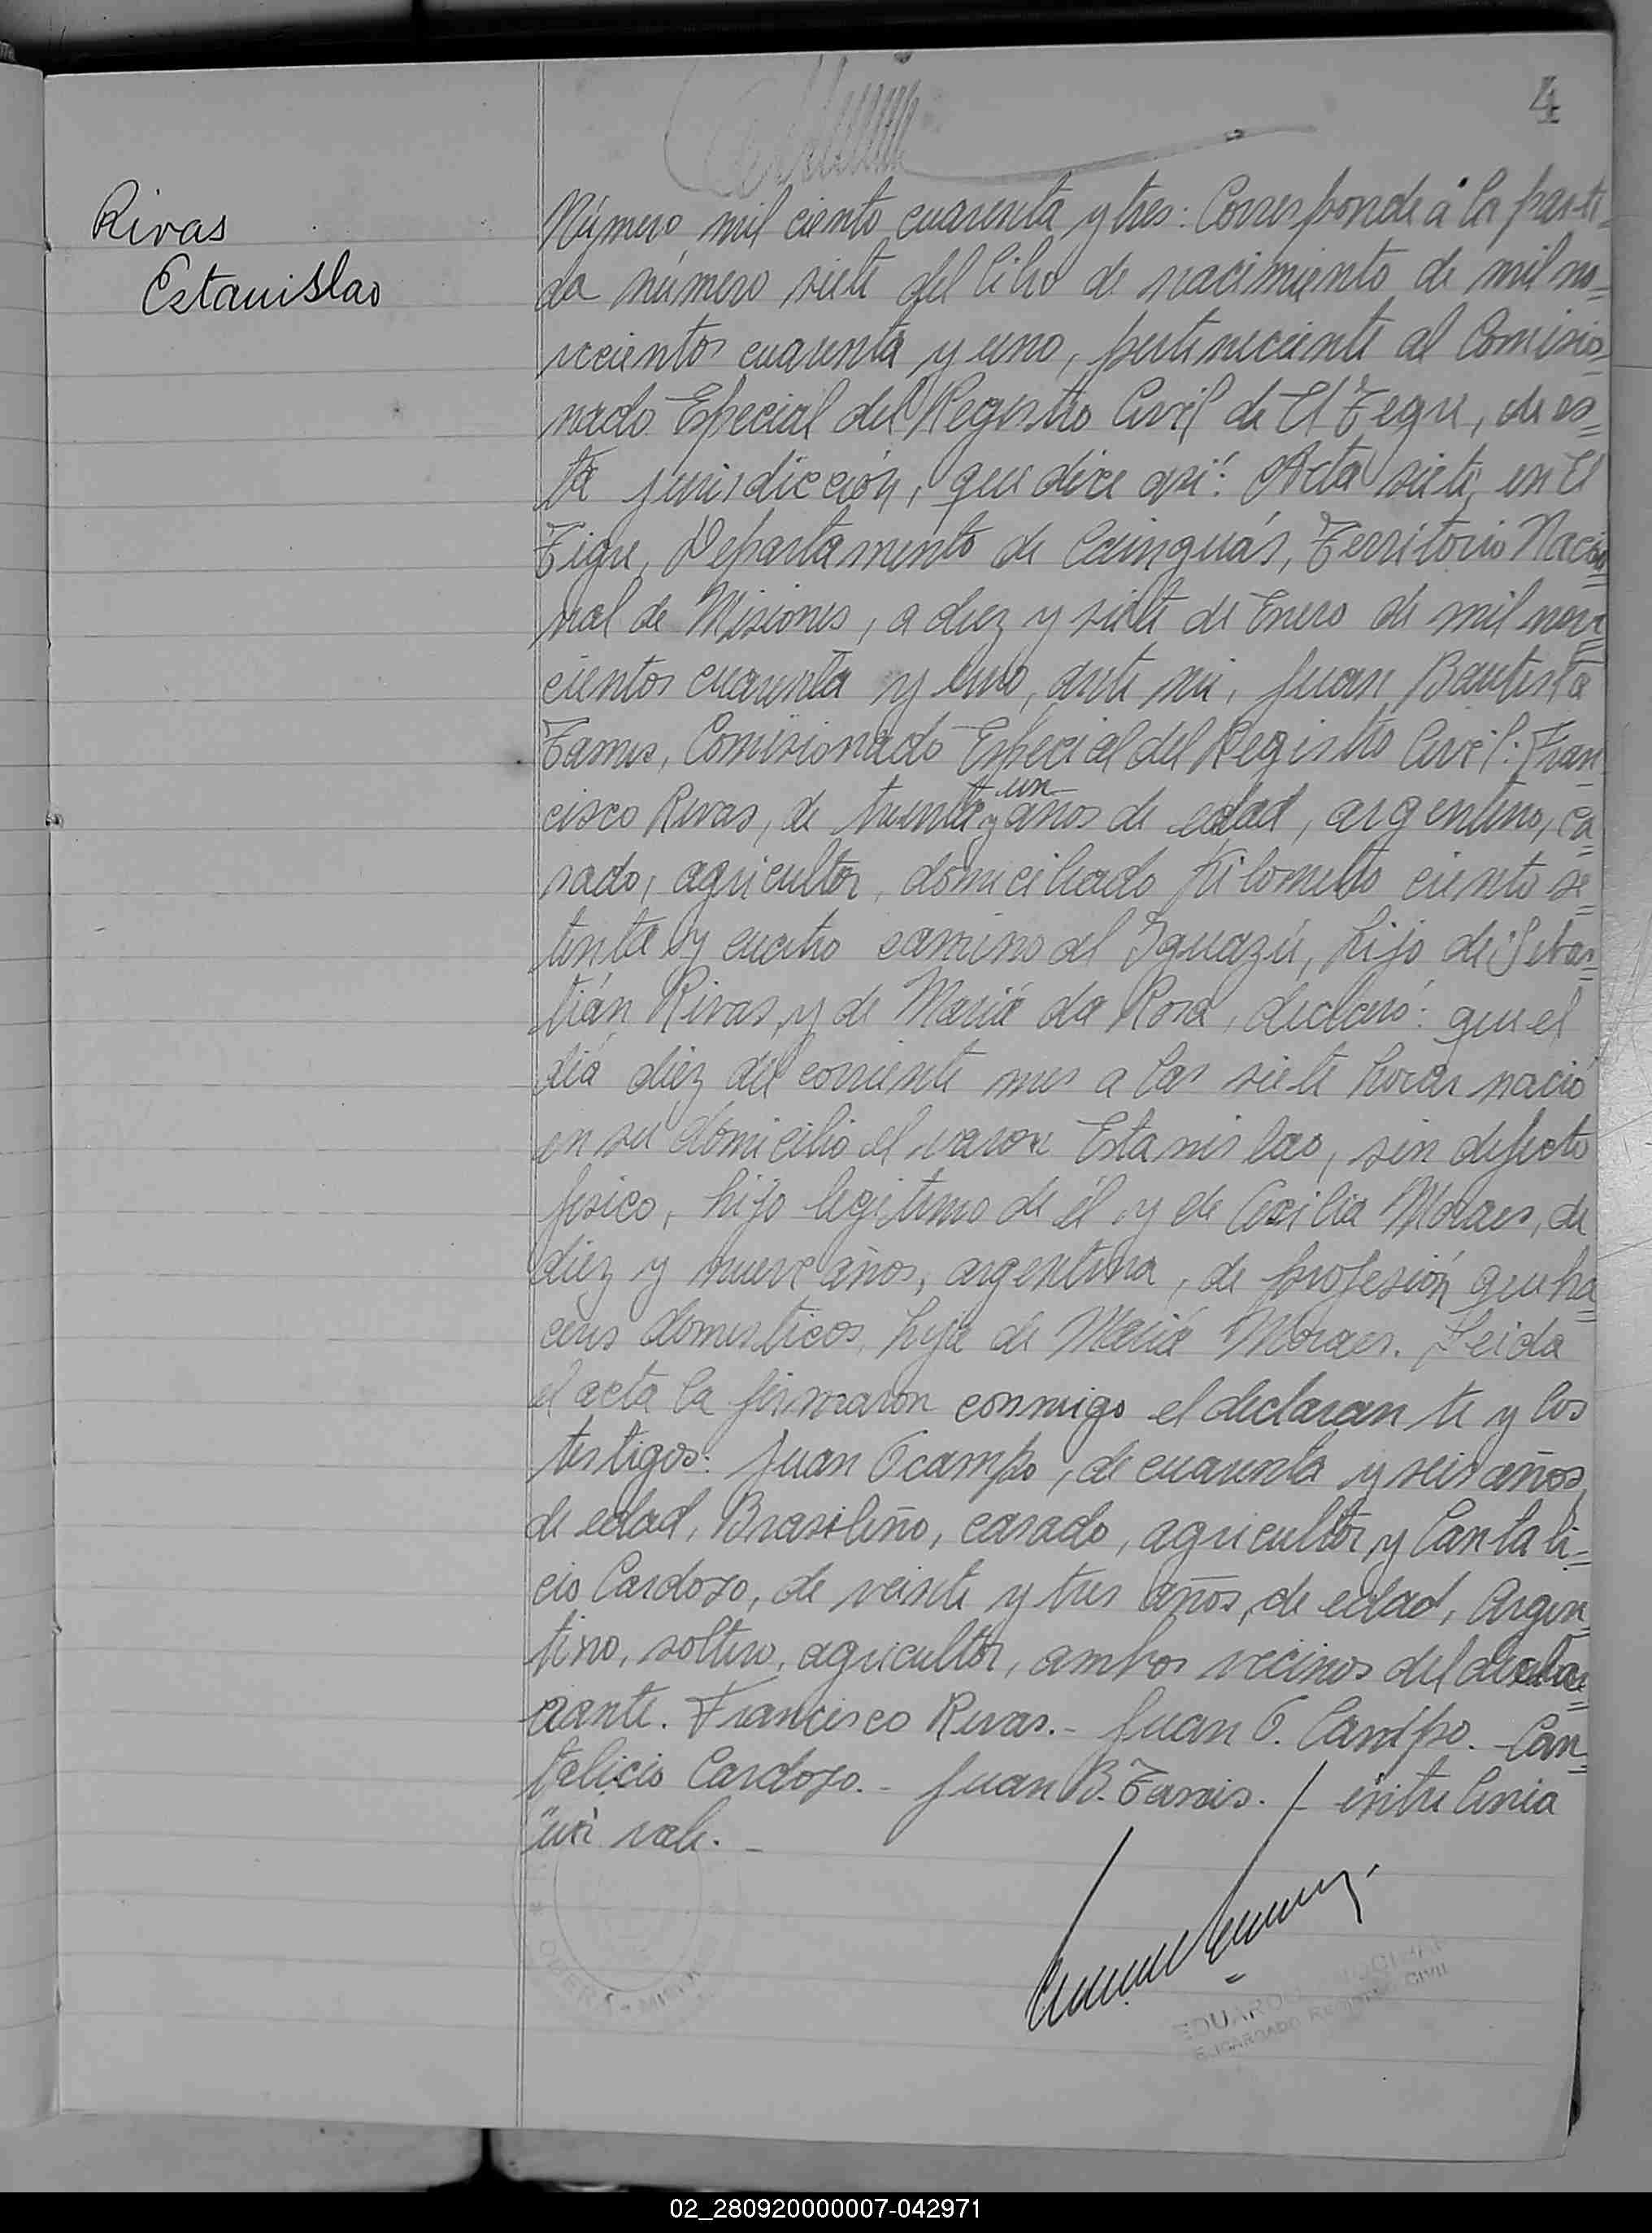 4
Rivas
Estanislao
Número mil ciento cuarenta y tres: Corresponde a la parti-
da número siete del libro de nacimiento de mil no=
vecientos cuarenta y uno, perteneciente al Comisio=
nado Especial del Registro Civil de El Tigre, de es=
ta jurisdicción, que dice así: Acta siete, en El
Tigre, Departamento de Cainguás, Territorio Nacio=
nal de Misiones, a diez y siete de Enero de mil nove
cientos cuarenta y uno, ante mi, Juan Bautista
Comisionado Especial del Registro Civil: Fran-
cisco Rivas, de treinta y un años de edad, argentino, ca=
sado, agricultor, domiciliado Kilometro ciento se=
tenta y cuatro camino al Iguazú, hijo de Sebas=
tián Rivas, y de María da Rosa, declaró: que el
día diez del corriente mes a las siete horas nació
en su domicilio el varon Estanislao, sin defecto
fisico, hijo legitimo de él y de Cecilia Moraes, de
diez y nueve años, argentina, de profesión queha=
ceres domesticos, hija de María Moraes. Leida
el acta la firmaron conmigo el declarante y los
testigos: Juan Ocampo, de cuarenta y seis años
de edad, Brasileño, casado, agricultor y Cantali=
cio Cardozo, de veinte y tres años, de edad, Argen=
tino, soltero, agricultor, ambos vecinos del decla=
rante. Francisco Rivas.- Juan O. Campo.- Can=
talicio Cardozo.- Juan B. / entre linia
"un" vale.-
OBERA - MISIONES
EDUARDO
ENCARGADO REGISTRO CIVIL
02_280920000007-042971